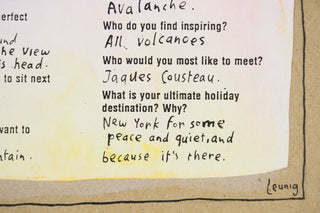 erfect
und
he view
s head.
to sit next
want to
ntain.
Avalanche.
Who do you find inspiring?
All volcanoes
Who would you most like to meet?
Jaques Cousteau.
What is your ultimate holiday
destination? Why?
New York for some
peace and quiet, and
because it's there.
Leunig